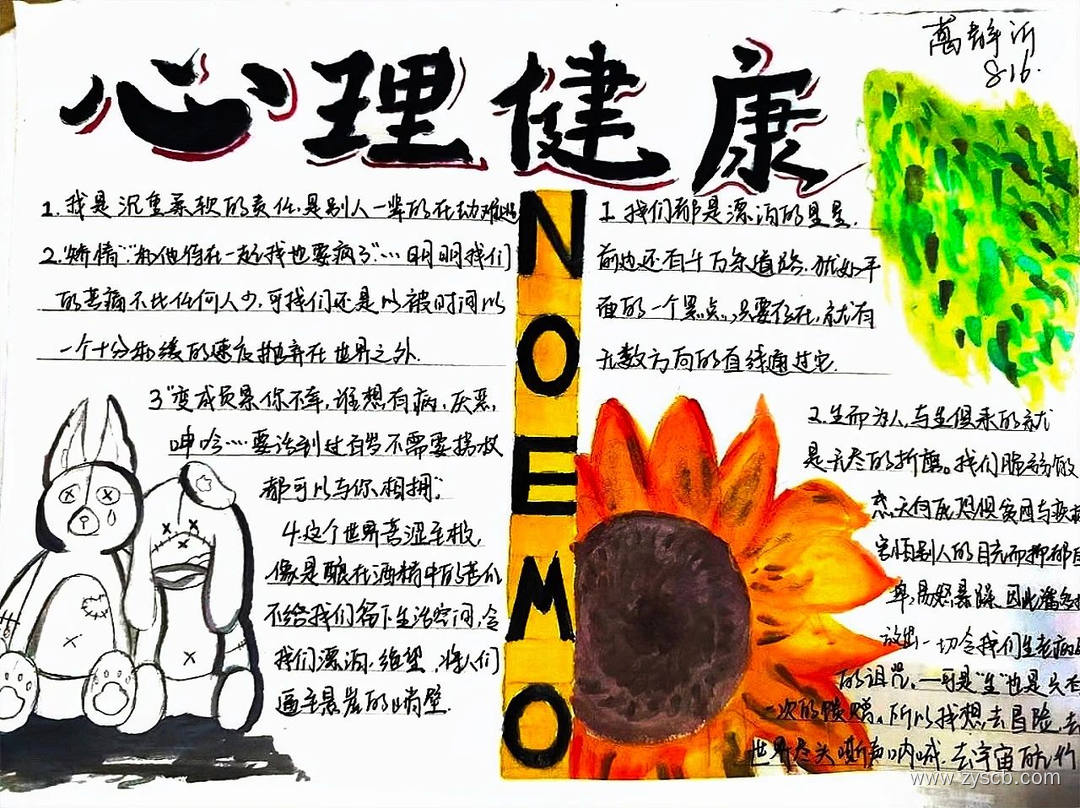 心理健康
816.
NOEMO
1.我是沉重柔软的责任,是别人一辈的在劫难逃
2."矫情""和他待在一起我也要疯了"…明明我们
的苦痛不比任何人少,可我们还是以被时间以
一个十分和缓的速度抛弃在世界之外.
3"变成负累你不幸,谁想有病,厌恶,
呻吟……要活到过百岁不需要拐杖
都可以与你相拥."
4.这个世界苦涩至极,
像是酿在酒精中的苦瓜
不给我们留下生活空间,令
我们漂泊,绝望,将人们
逼至悬崖的峭壁.
1.我们都是漂泊的星星.
前边还有千万条道路.犹如平
面的一个黑点,只要存在,就有
无数方向的直线通过它.
2.生而为人,与生俱来的就
是无尽的折磨。我们脸
恐惧贫困与疾病
害怕别人的目光而抑郁自
卑,易怒暴躁.因此潘多拉
放出一切令我们生老病
的诅咒.—可是"生"也是只有
一次的馈赠。所以我想,去冒险,去
世界尽头嘶声呐喊.去宇宙的
www.zyscb.com